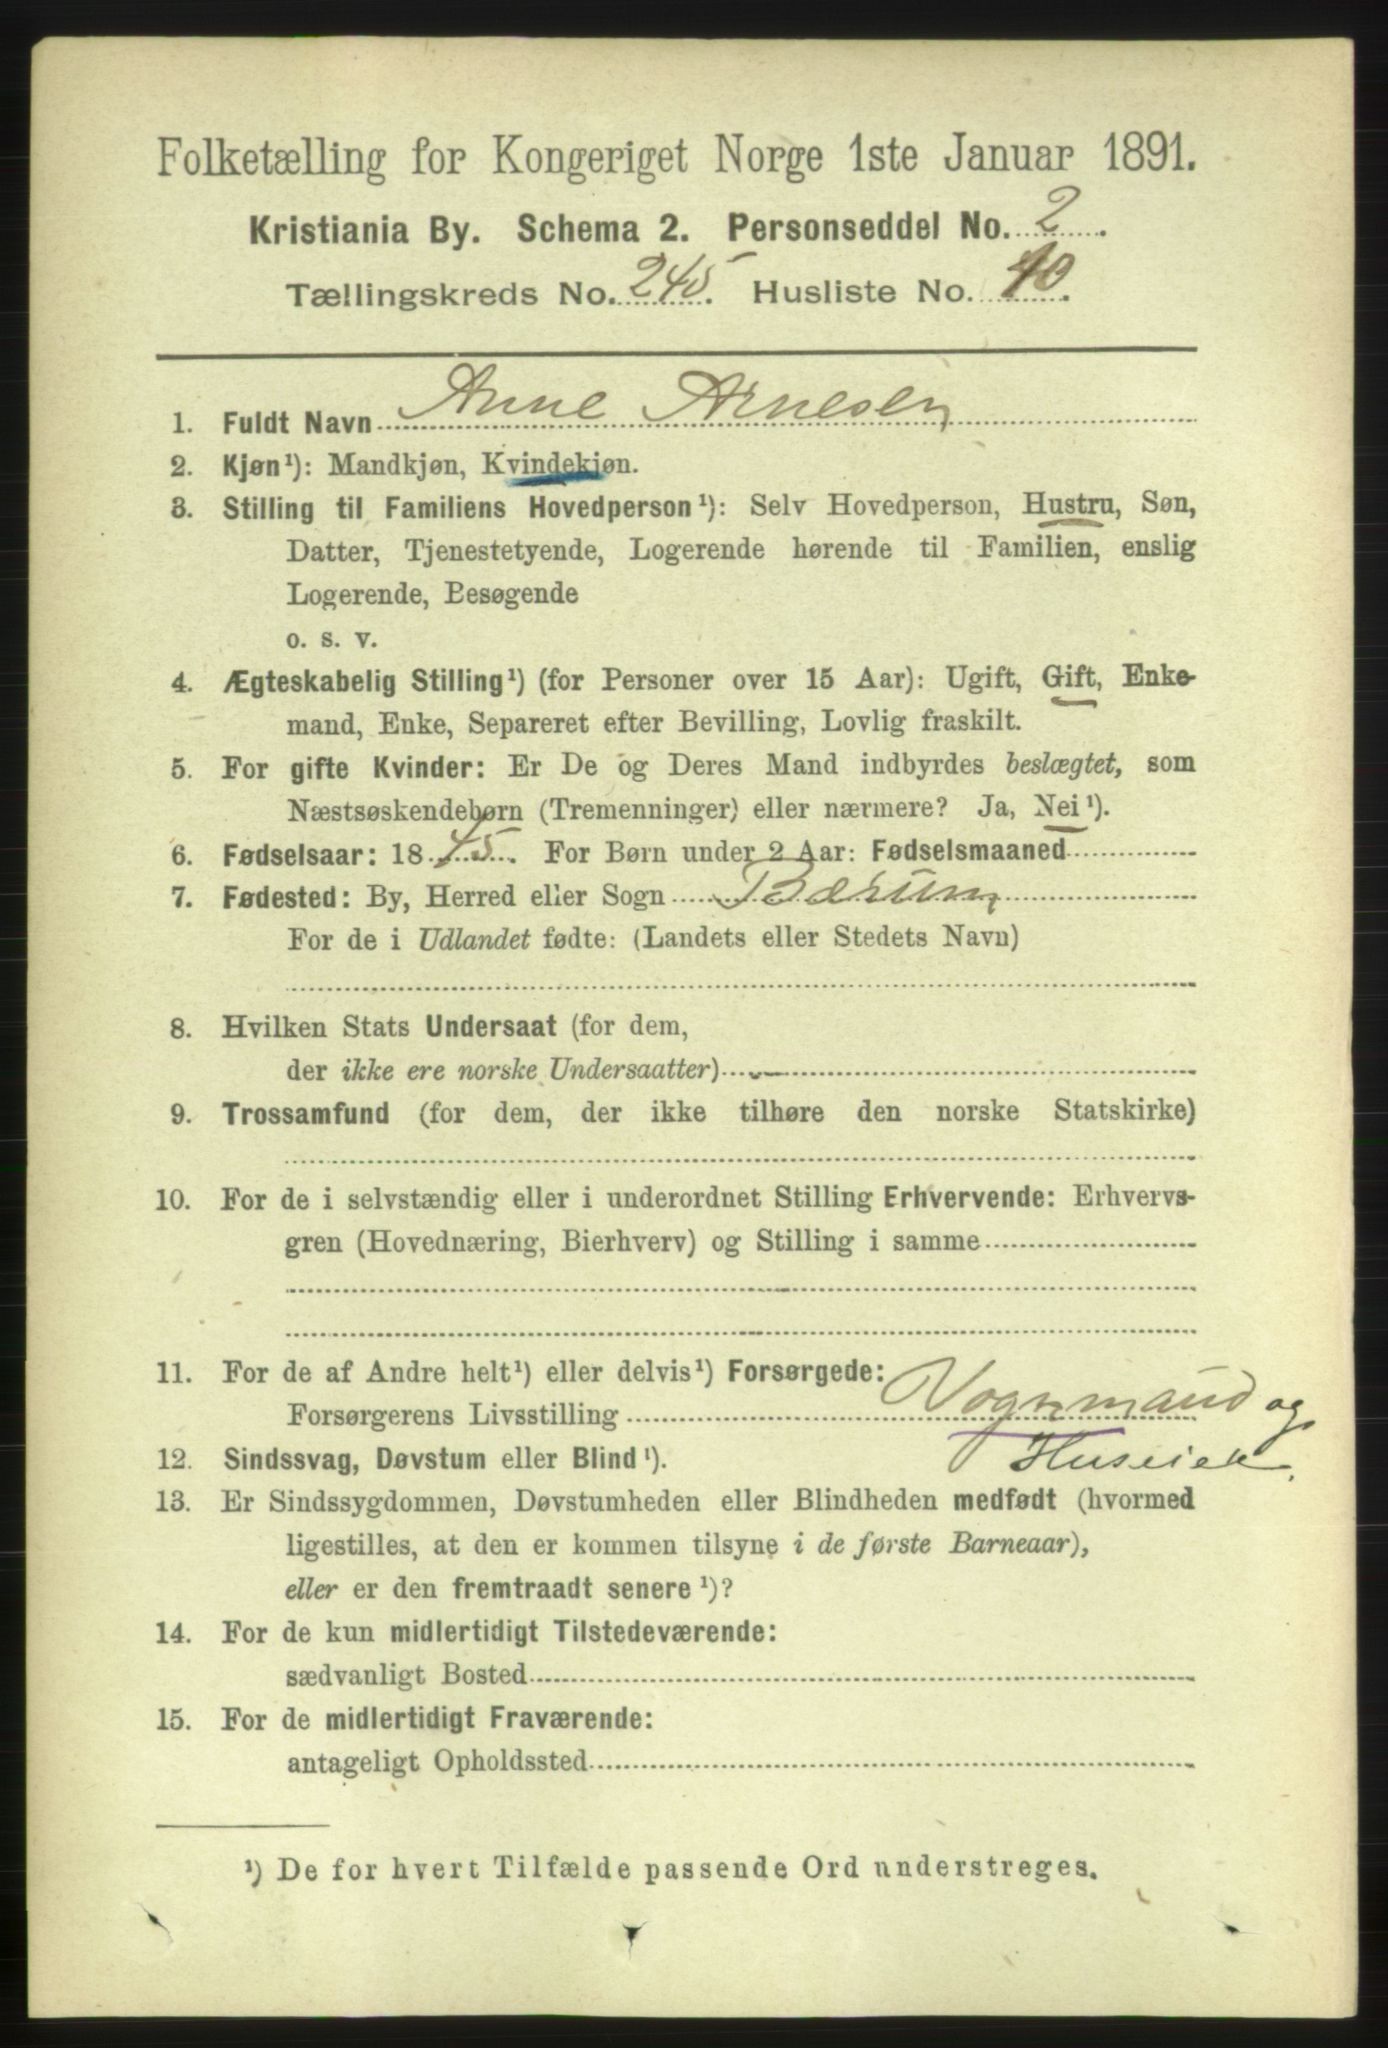 Folketælling for Kongeriget Norge 1ste Januar 1891.
Kristiania By. Schema 2. Personseddel No. 2.
Tællingskreds No. 245. Husliste No. 10.
1. Fuldt Navn Anne Arnesen
2. Kjøn¹): Mandkjøn, Kvindekjøn.
3. Stilling til Familiens Hovedperson¹): Selv Hovedperson, Hustru, Søn,
Datter, Tjenestetyende, Logerende hørende til Familien, enslig
Logerende, Besøgende
o. s. v.
4. Ægteskabelig Stilling¹) (for Personer over 15 Aar): Ugift, Gift, Enke-
mand, Enke, Separeret efter Bevilling, Lovlig fraskilt.
5. For gifte Kvinder: Er De og Deres Mand indbyrdes beslægtet, som
Næstsøskendebørn (Tremenninger) eller nærmere? Ja, Nei¹).
6. Fødselsaar: 1845. For Børn under 2 Aar: Fødselsmaaned
7. Fødested: By, Herred eller Sogn Bærum
For de i Udlandet fødte: (Landets eller Stedets Navn)
8. Hvilken Stats Undersaat (for dem,
der ikke ere norske Undersaatter)
9. Trossamfund (for dem, der ikke tilhøre den norske Statskirke)
10. For de i selvstændig eller i underordnet Stilling Erhvervende: Erhvervs-
gren (Hovednæring, Bierhverv) og Stilling i samme
11. For de af Andre helt¹) eller delvis¹) Forsørgede:
Forsørgerens Livsstilling Vognmand og
Huseier.
12. Sindssvag, Døvstum eller Blind¹).
13. Er Sindssygdommen, Døvstumheden eller Blindheden medfødt (hvormed
ligestilles, at den er kommen tilsyne i de første Barneaar),
eller er den fremtraadt senere¹)?
14. For de kun midlertidigt Tilstedeværende:
sædvanligt Bosted
15. For de midlertidigt Fraværende:
antageligt Opholdssted
¹) De for hvert Tilfælde passende Ord understreges.